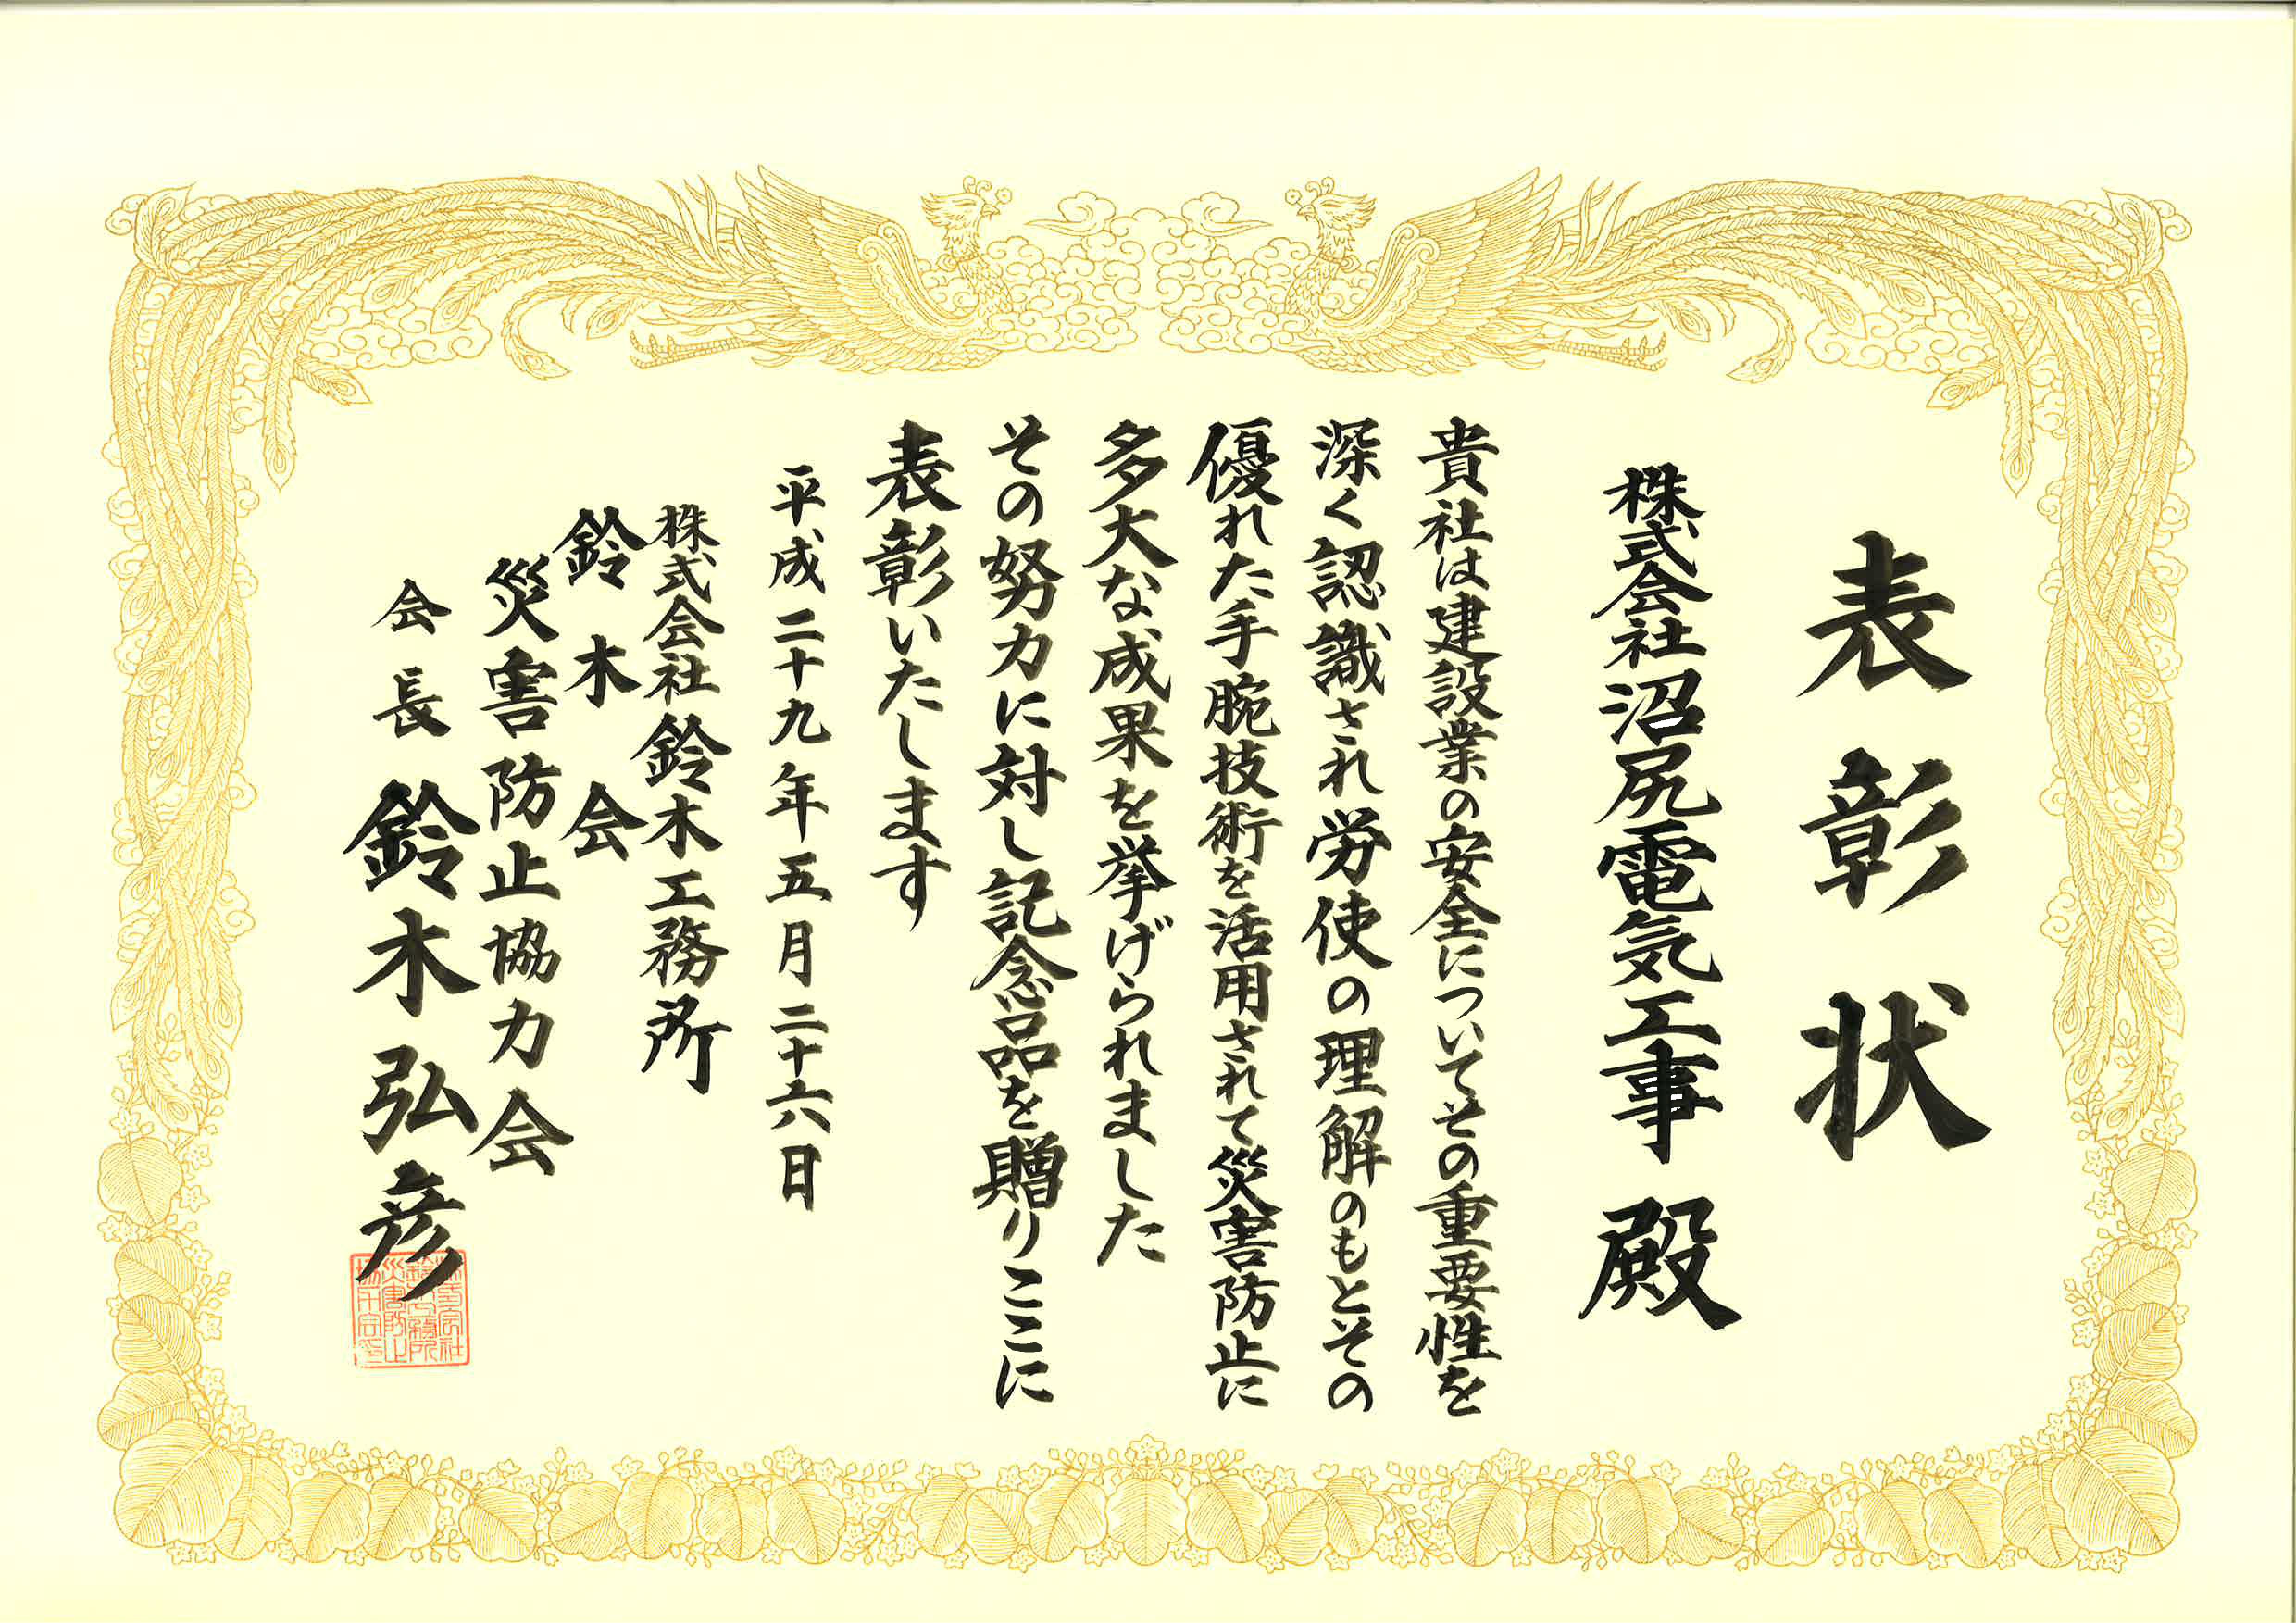 表彰状
株式会社沼尻電気工事 殿
貴社は建設業の安全についてその重要性を
深く認識され労使の理解のもとその
優れた手腕技術を活用されて災害防止に
多大な成果を挙げられました
その努力に対し記念品を贈りここに
表彰いたします
平成二十九年五月二十六日
株式会社鈴木工務所
鈴木会
災害防止協力会
会長 鈴木弘彦